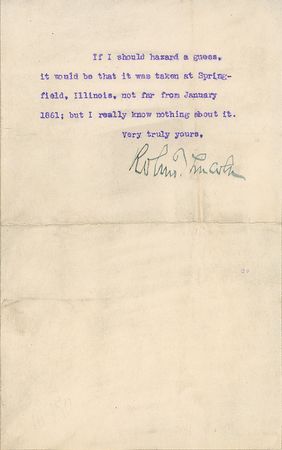 If I should hazard a guess,
it would be that it was taken at Spring-
field, Illinois, not far from January
1861; but I really know nothing about it.
Very truly yours,
Robert T. Lincoln